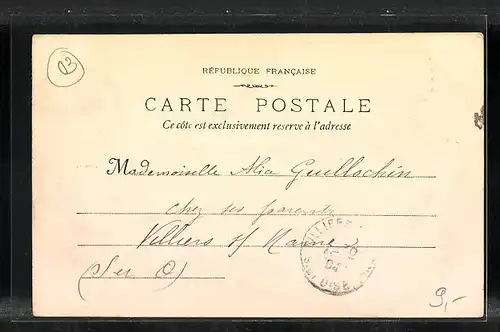 03
RÉPUBLIQUE FRANÇAISE
CARTE POSTALE
Ce côté est exclusivement réservé à l'adresse
Mademoiselle Alice Guillochin
chez ses parents
Villiers s/ Marne
(S et O)
9,-